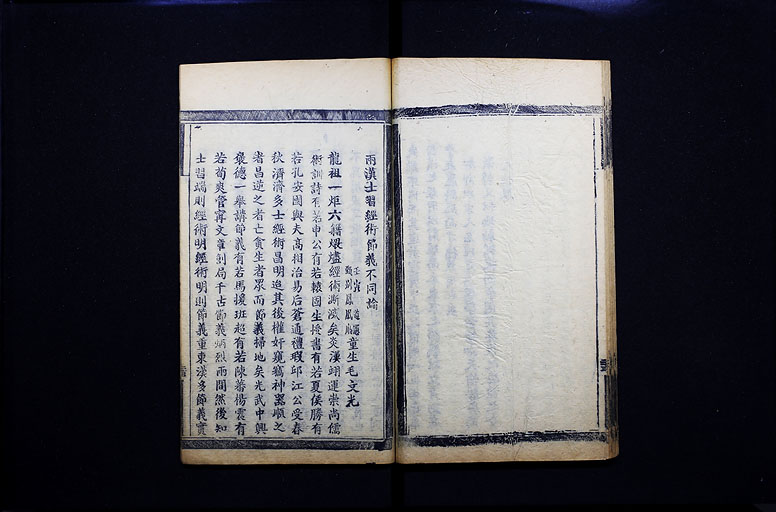 兩漢士習經術節義不同論
童生毛文光
龍祖一炬六籍煨燼經術澌滅矣炎漢翊運崇尚儒
術訓詩有若申公有若轅固生授書有若夏侯勝有
若孔安國與夫高相治易后蒼通禮瑕邱江公受春
秋濟濟多士經術昌明迨其後權奸窺竊神器順之
者昌逆之者亡貪生者眾而節義掃地矣光武中興
褒德一舉講節義有若馬援班超有若陳蕃楊震有
若荀爽管甯文章創局千古節義炳烈兩間然後知
士習端則經術明經術明則節義重東漢多節義實